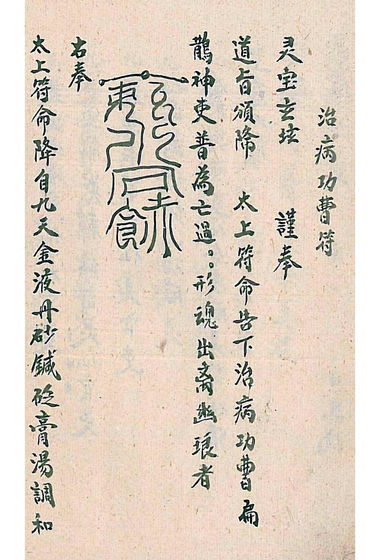 治病功曹符
灵宝玄坛　謹奉
道旨頒降　太上符命告下治病功曹扁
鵲神吏普為亡過。。形魂出離幽
者
右奉
太上符命降自九天金液丹砂鍼砭膏湯調和